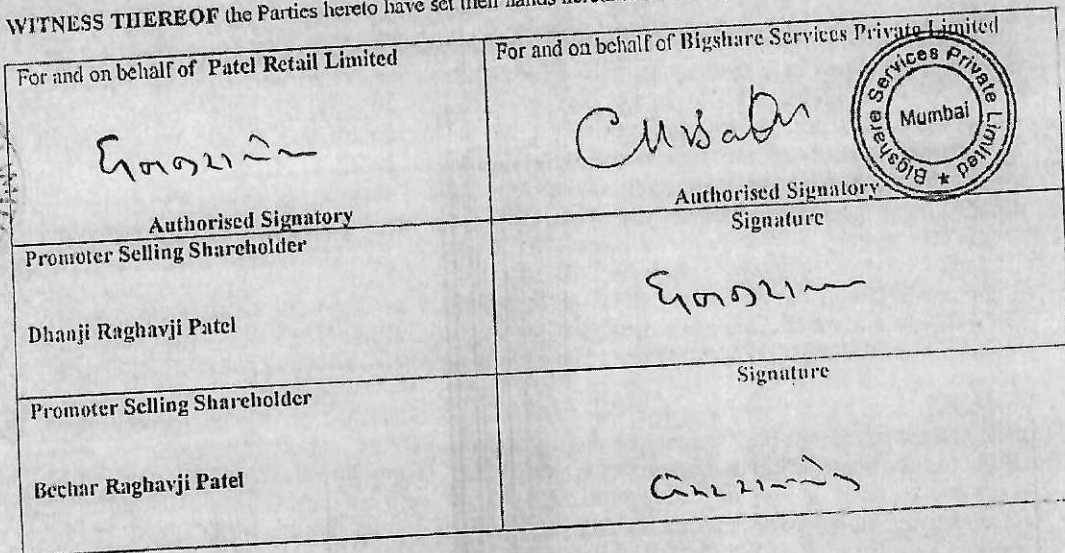 WITNESS THEREOF the Parties hereto have set their hands
For and on behalf of Patel Retail Limited
Authorised Signatory
For and on behalf of Bigshare Services Private Limited
Bigshare Services Private Limited
Mumbai
Authorised Signatory
Promoter Selling Shareholder
Dhanji Raghavji Patel
Signature
Promoter Selling Shareholder
Bechar Raghavji Patel
Signature